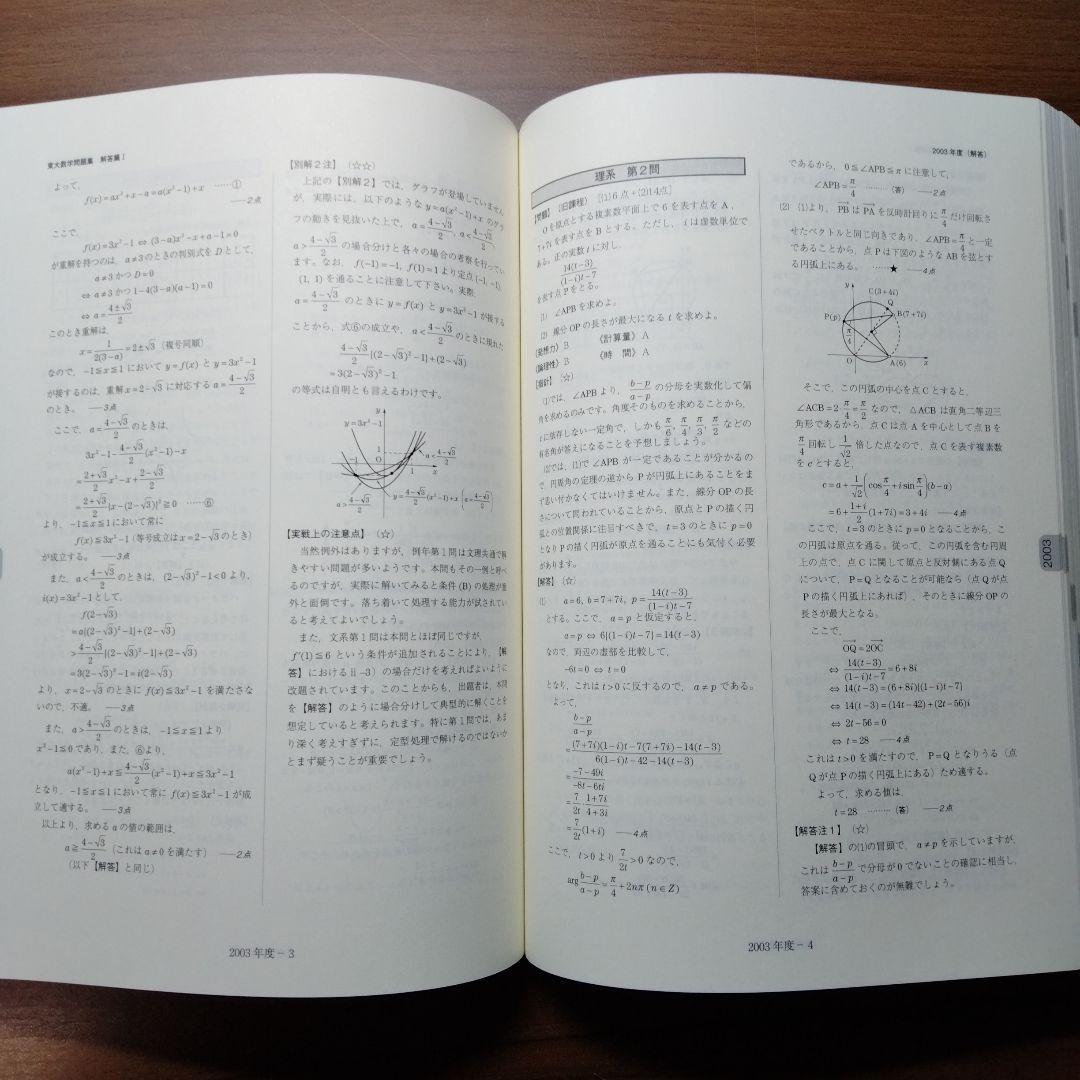 東大数学問題集 解答篇 I
よって,
f(x)=ax²+x-a=a(x²-1)+x ……①
——2点
ここで,
f(x)=3x²-1 ⇔ (3-a)x²-x+a-1=0
が重解を持つのは, a≠3のときの判別式をDとして,
a≠3かつD=0
⇔ a≠3かつ1-4(3-a)(a-1)=0
⇔ a=(4±√3)/2
このとき重解は,
x=1/(2(3-a))=2±√3 (複号同順)
なので, -1≦x≦1において y=f(x) と y=3x²-1
が接するのは, 重解 x=2-√3 に対応する a=(4-√3)/2
のとき。 ——3点
ここで, a=(4-√3)/2 のときは,
3x²-1-(4-√3)/2(x²-1)-x
=(2+√3)/2x²-x+(2-√3)/2
=(2+√3)/2{x-(2-√3)}²≧0 ……⑥
より, -1≦x≦1において常に
f(x)≦3x²-1 (等号成立は x=2-√3 のとき)
が成立する。 ——3点
また, a<(4-√3)/2 のときは, (2-√3)²-1<0 より,
i(x)=3x²-1として,
f(2-√3)
=a{(2-√3)²-1}+(2-√3)
>(4-√3)/2{(2-√3)²-1}+(2-√3)
=3(2-√3)²-1=i(2-√3)
より, x=2-√3 のときに f(x)≦3x²-1 を満たさな
いので, 不適。 ——3点
また, a>(4-√3)/2 のときは, -1≦x≦1より
x²-1≦0であり, また, ⑥より,
a(x²-1)+x≦(4-√3)/2(x²-1)+x≦3x²-1
となり, -1≦x≦1において常に f(x)≦3x²-1 が成
立して適する。 ——3点
以上より, 求める a の値の範囲は,
a≧(4-√3)/2 (これは a≠0 を満たす) ——2点
(以下【解答】と同じ)
【別解2注】 (☆☆)
上記の【別解2】では, グラフが登場していません
が, 実際には, 以下のような y=a(x²-1)+x のグラ
フの動きを見抜いた上で, a=(4-√3)/2, a<(4-√3)/2,
a>(4-√3)/2 の場合分けと各々の場合の考察を行ってい
ます。なお, f(-1)=-1, f(1)=1 より定点(-1, -1),
(1, 1) を通ることに注意して下さい。実際,
a=(4-√3)/2 のときに y=f(x) と y=3x²-1 が接する
ことから, 式⑥の成立や, a<(4-√3)/2 のときに現れた
(4-√3)/2{(2-√3)²-1}+(2-√3)
=3(2-√3)²-1
の等式は自明とも言えるわけです。
y
y=3x²-1
1
-1
O
1
x
a<(4-√3)/2
a>(4-√3)/2
y=(4-√3)/2(x²-1)+x (a=(4-√3)/2)
【実戦上の注意点】 (☆)
当然例外はありますが, 例年第1問は文理共通で解
きやすい問題が多いようです。本問もその一例と呼べ
るのですが, 実際に解いてみると条件(B)の処理が意
外と面倒です。落ち着いて処理する能力が試されてい
ると考えてよいでしょう。
また, 文系第1問は本問とほぼ同じですが,
f′(1)≦6 という条件が追加されることにより, 【解
答】における ii-3) の場合だけを考えればよいように
改題されています。このことからも, 出題者は, 本問
を【解答】のように場合分けして典型的に解くことを
想定していると考えられます。特に第1問では, あま
り深く考えすぎずに, 定型処理で解けるのではないか
とまず疑うことが重要でしょう。
2003 年度－3
2003 年度 (解答)
理系 第2問
【問題】 (旧課程) [(1)6点+(2)14点]
Oを原点とする複素数平面上で6を表す点をA,
7+7iを表す点をBとする。ただし, iは虚数単位で
ある。正の実数tに対し,
14(t-3)/((1-i)t-7)
を表す点Pをとる。
(1) ∠APBを求めよ。
(2) 線分OPの長さが最大になるtを求めよ。
《発想力》B 《計算量》A
《論理性》B 《時 間》A
【指針】 (☆)
(1)では, ∠APBより, (b-p)/(a-p) の分母を実数化して偏
角を求めるのみです。角度そのものを求めることから,
tに依存しない一定角で, しかも π/6, π/4, π/3, π/2 などの
有名角が答えになることを予想しましょう。
(2)では, (1)で∠APBが一定であることが分かるの
で, 円周角の定理の逆からPが円弧上にあることをま
ず思い付かなくてはいけません。また, 線分OPの長
さについて問われていることから, 原点とPの描く円
弧との位置関係に注目すべきで, t=3のときにp=0
となりPの描く円弧が原点を通ることにも気付く必要
があります。
【解答】 (☆)
(1) a=6, b=7+7i, p=14(t-3)/((1-i)t-7)
とする。ここで, a=p と仮定すると,
a=p ⇔ 6{(1-i)t-7}=14(t-3)
なので, 両辺の虚部を比較して,
-6t=0 ⇔ t=0
となり, これは t>0 に反するので, a≠p である。
よって,
(b-p)/(a-p)
=((7+7i)(1-i)t-7(7+7i)-14(t-3))/(6(1-i)t-42-14(t-3))
=(-7-49i)/(-8t-6ti)
=7/2t・(1+7i)/(4+3i)
=7/2t(1+i) ——4点
ここで, t>0より 7/2t>0なので,
arg(b-p)/(a-p)=π/4+2nπ (n∈Z)
であるから, 0≦∠APB≦πに注意して,
∠APB=π/4 ………(答) ——2点
(2) (1)より, PB→はPA→を反時計回りに π/4 だけ回転さ
せたベクトルと同じ向きであり, ∠APB=π/4 と一定
であることから, 点Pは下図のようなABを弦とす
る円弧上にある。 ……★ ——4点
y
Q
C(3+4i)
P(p)
B(7+7i)
π/4
O
A(6)
x
そこで, この円弧の中心を点Cとすると,
∠ACB=2・π/4=π/2 なので, △ACBは直角二等辺三
角形であるから, 点Cは点Aを中心として点Bを
π/4 回転し 1/√2 倍した点なので, 点Cを表す複素数
をcとすると,
c=a+1/√2(cos π/4+i sin π/4)(b-a)
=6+(1+i)/2(1+7i)=3+4i ——4点
ここで, t=3のときにp=0となることから, こ
の円弧は原点を通る。従って, この円弧を含む円周
上の点で, 点Cに関して原点と反対側にある点Q
について, P=Qとなることが可能なら(点Qが点
Pの描く円弧上にあれば), そのときに線分OPの
長さが最大となる。
ここで,
OQ→=2OC→
⇔ 14(t-3)/((1-i)t-7)=6+8i
⇔ 14(t-3)=(6+8i){(1-i)t-7}
⇔ 14(t-3)=(14t-42)+(2t-56)i
⇔ 2t-56=0
⇔ t=28 ——4点
これは t>0 を満たすので, P=Qとなりうる(点
Qが点Pの描く円弧上にある)ため適する。
よって, 求める値は,
t=28 ………(答) ——2点
【解答注1】 (☆)
【解答】の(1)の冒頭で, a≠p を示していますが,
これは (b-p)/(a-p) で分母が0でないことの確認に相当し,
答案に含めておくのが無難でしょう。
2003
2003 年度－4